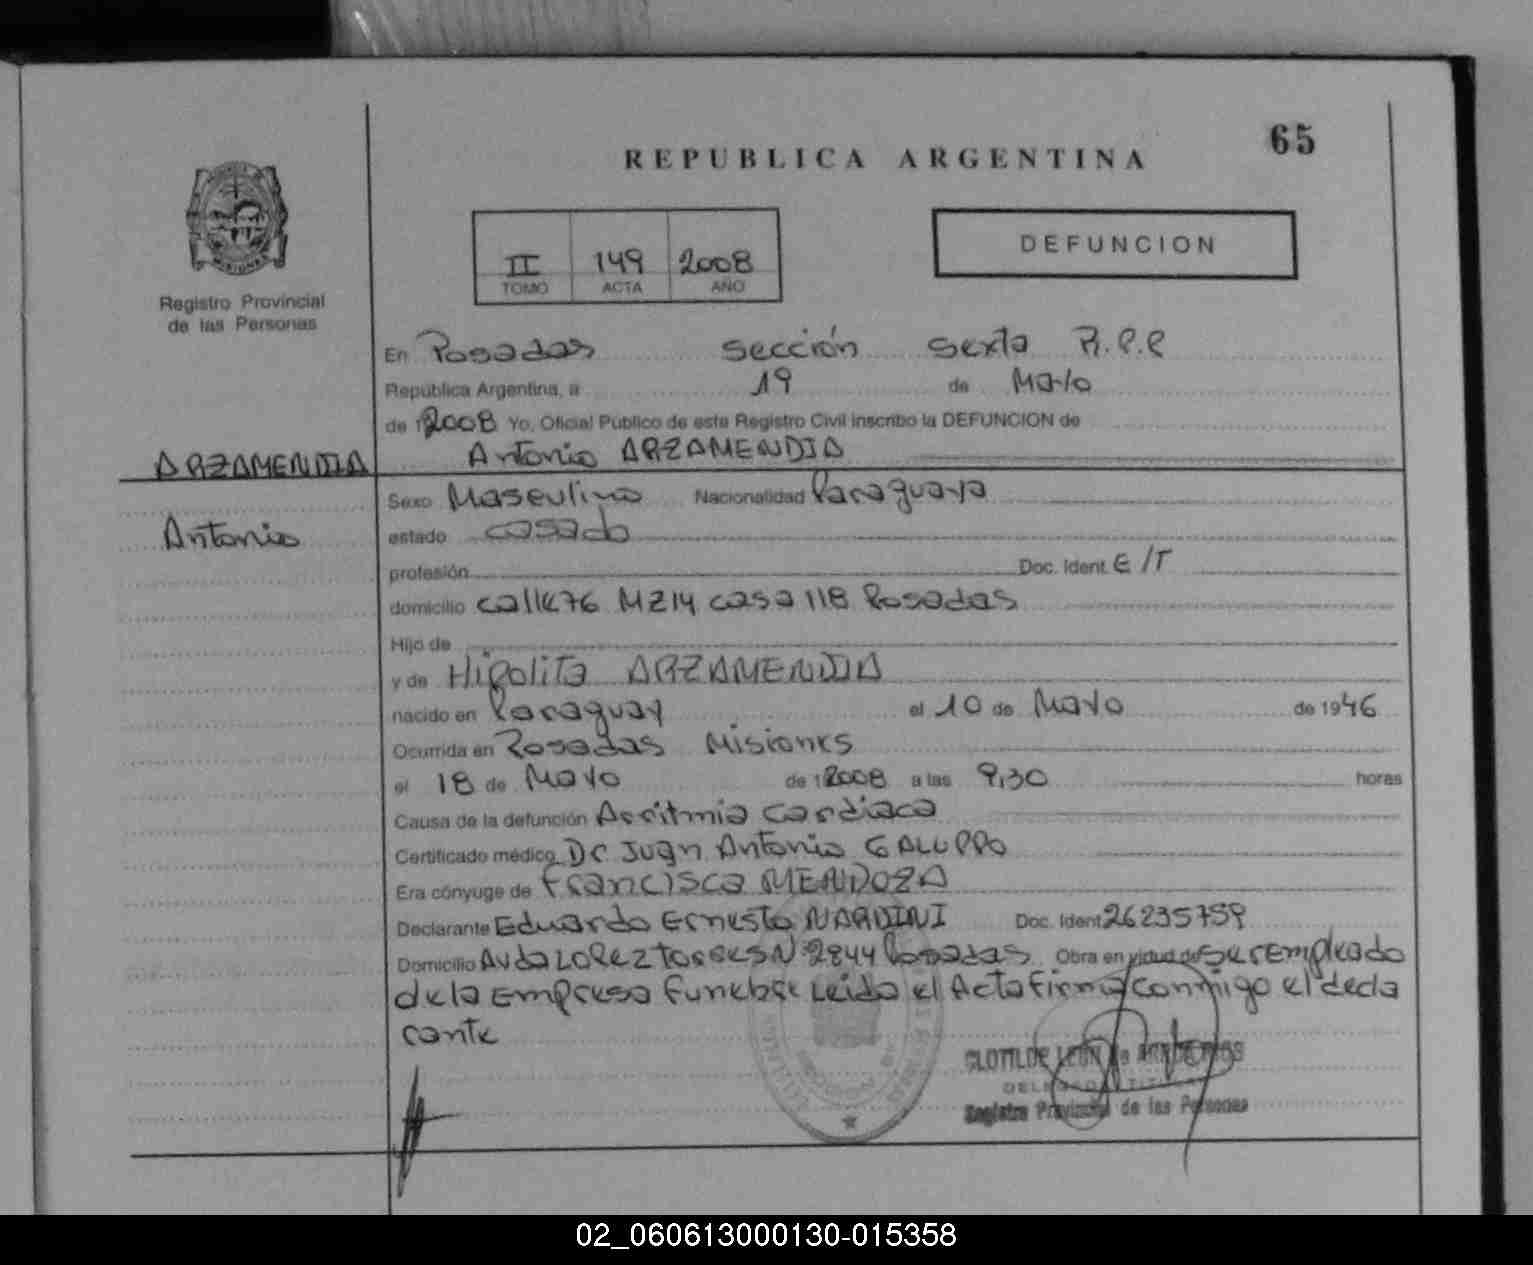 65
REPUBLICA ARGENTINA
II 149 2008
TOMO ACTA AÑO
DEFUNCION
MISIONES
Registro Provincial
de las Personas
En Posadas sección sexta R.P.P
República Argentina, a 19 de Mayo
de 12008 Yo, Oficial Público de este Registro Civil inscribo la DEFUNCION de
ARZAMENDIA Antonio ARZAMENDIA
Sexo Masculino Nacionalidad Paraguaya
Antonio
estado casado
profesión Doc. Ident. E/T
domicilio calle 76 MZ14 casa 118 Posadas
Hijo de
y de Hipolita ARZAMENDIA
nacido en Paraguay el 10 de Mayo de 1946
Ocurrida en Posadas Misiones
el 18 de Mayo de 12008 a las 9,30 horas
Causa de la defunción Arritmia Cardiaca
Certificado médico Dr Juan Antonio GALUPPO
Era cónyuge de Francisca MENDOZA
Declarante Eduardo Ernesto NARDINI Doc. Ident 26235759
Domicilio Avda Lopez Torres N° 2844 Posadas Obra en virtud de ser empleado
de la Empresa Funebre Leido el Acta Firma conmigo el decla
rante
CLOTILDE LEON de
Registro Provincial de las Personas
02_060613000130-015358